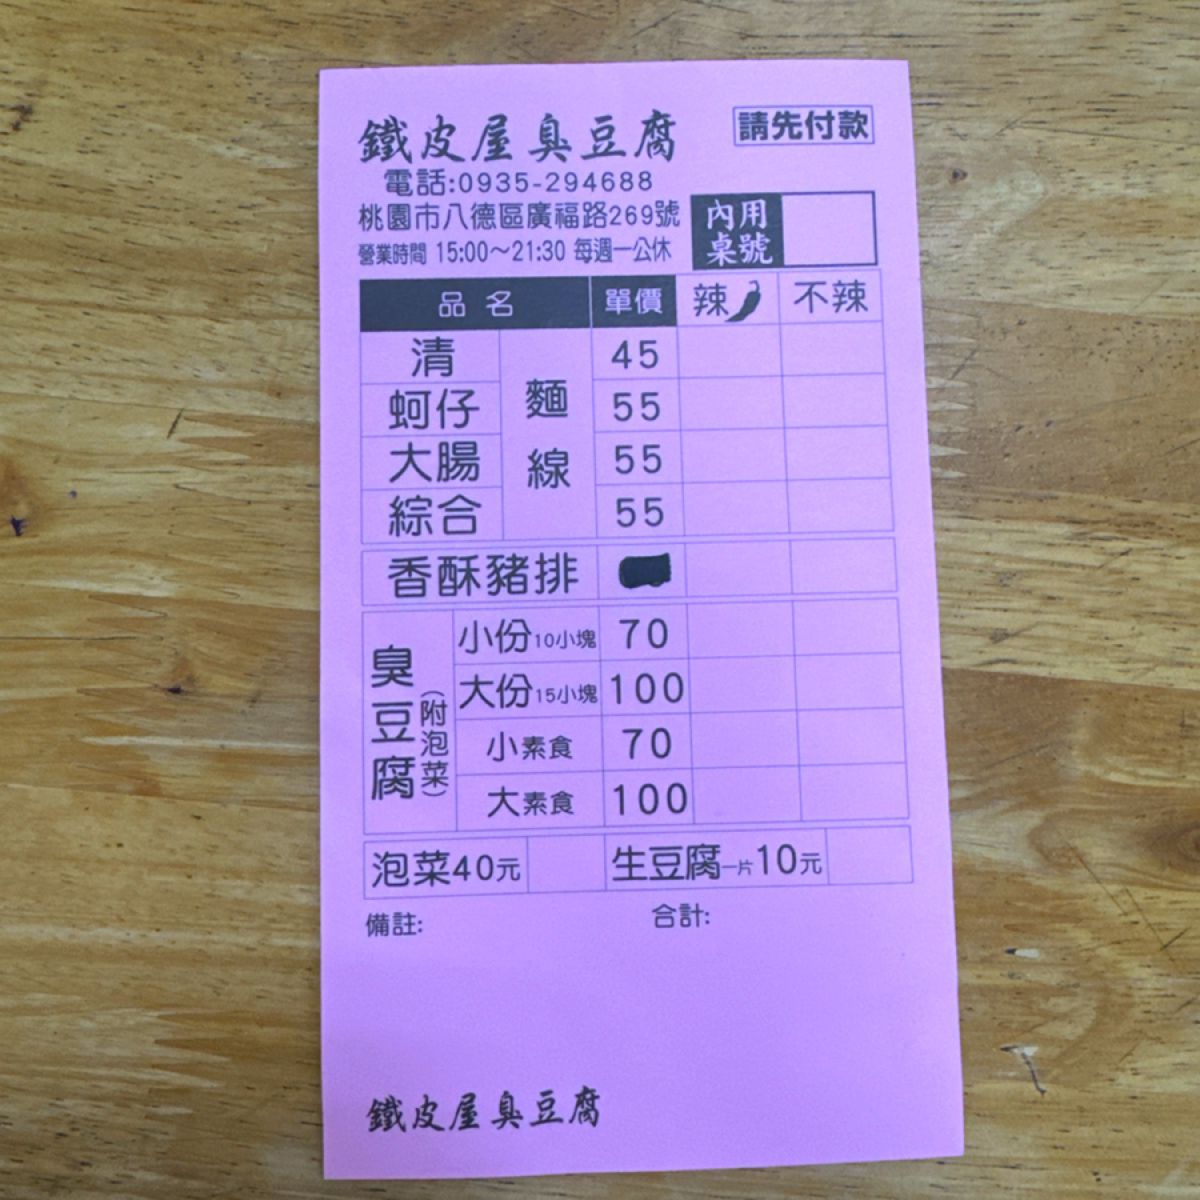 鐵皮屋臭豆腐
請先付款
電話:0935-294688
桃園市八德區廣福路269號
營業時間 15:00～21:30 每週一公休
內用
桌號
品名 單價 辣 不辣
清 45
蚵仔 55
大腸 55
綜合 55
麵線
香酥豬排
臭豆腐(附泡菜)
小份10小塊 70
大份15小塊 100
小素食 70
大素食 100
泡菜40元 生豆腐一片10元
備註: 合計:
鐵皮屋臭豆腐